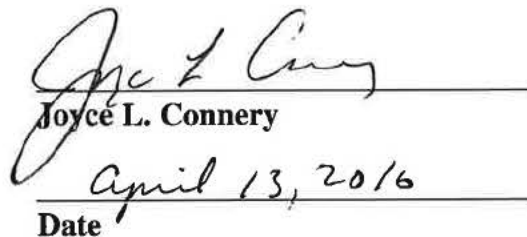 Joyce L Connery
Joyce L. Connery
April 13, 2016
Date